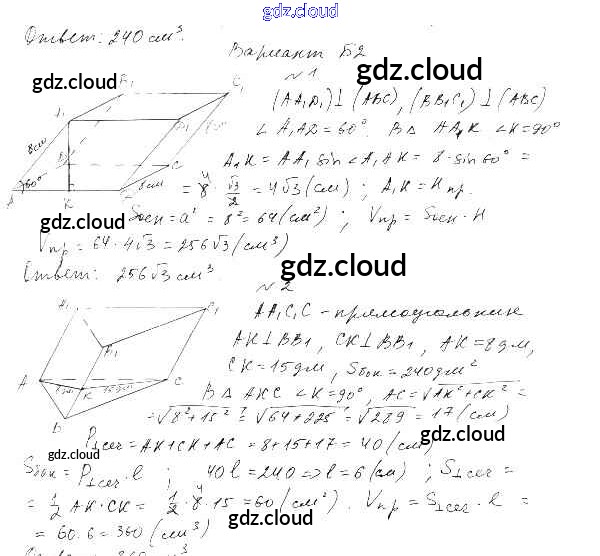 gdz.cloud
Ответ: 240 см³.
Вариант Б2
gdz.cloud
gdz.cloud
№1
(AA₁D₁)⊥(ABC), (BB₁C₁)⊥(ABC)
∠A₁AD=60°. В △ AA₁K ∠K=90°
A₁K = AA₁ sin∠A₁AK = 8·sin60° =
= 8·√3/2 = 4√3 (см); A₁K = Hпр.
Sосн = a² = 8² = 64 (см²); Vпр = Sосн·H
gdz.cloud
Vпр = 64·4√3 = 256√3 (см³)
Ответ: 256√3 см³.
gdz.cloud
№2
AA₁C₁C - прямоугольник
AK⊥BB₁, CK⊥BB₁, AK=8дм,
CK=15дм, Sбок=240дм²
gdz.cloud
В △ AKC ∠K=90°, AC=√AK²+CK² =
=√8²+15² = √64+225 = √289 = 17 (см)
P⊥сеч = AK+CK+AC = 8+15+17 = 40 (см)
gdz.cloud
gdz.cloud
Sбок = P⊥сеч·l; 40l=240 => l=6 (см); S⊥сеч =
= 1/2 AK·CK = 1/2·8·15 = 60 (см²). Vпр = S⊥сеч·l =
= 60·6 = 360 (см³)
gdz.cloud
gdz.cloud